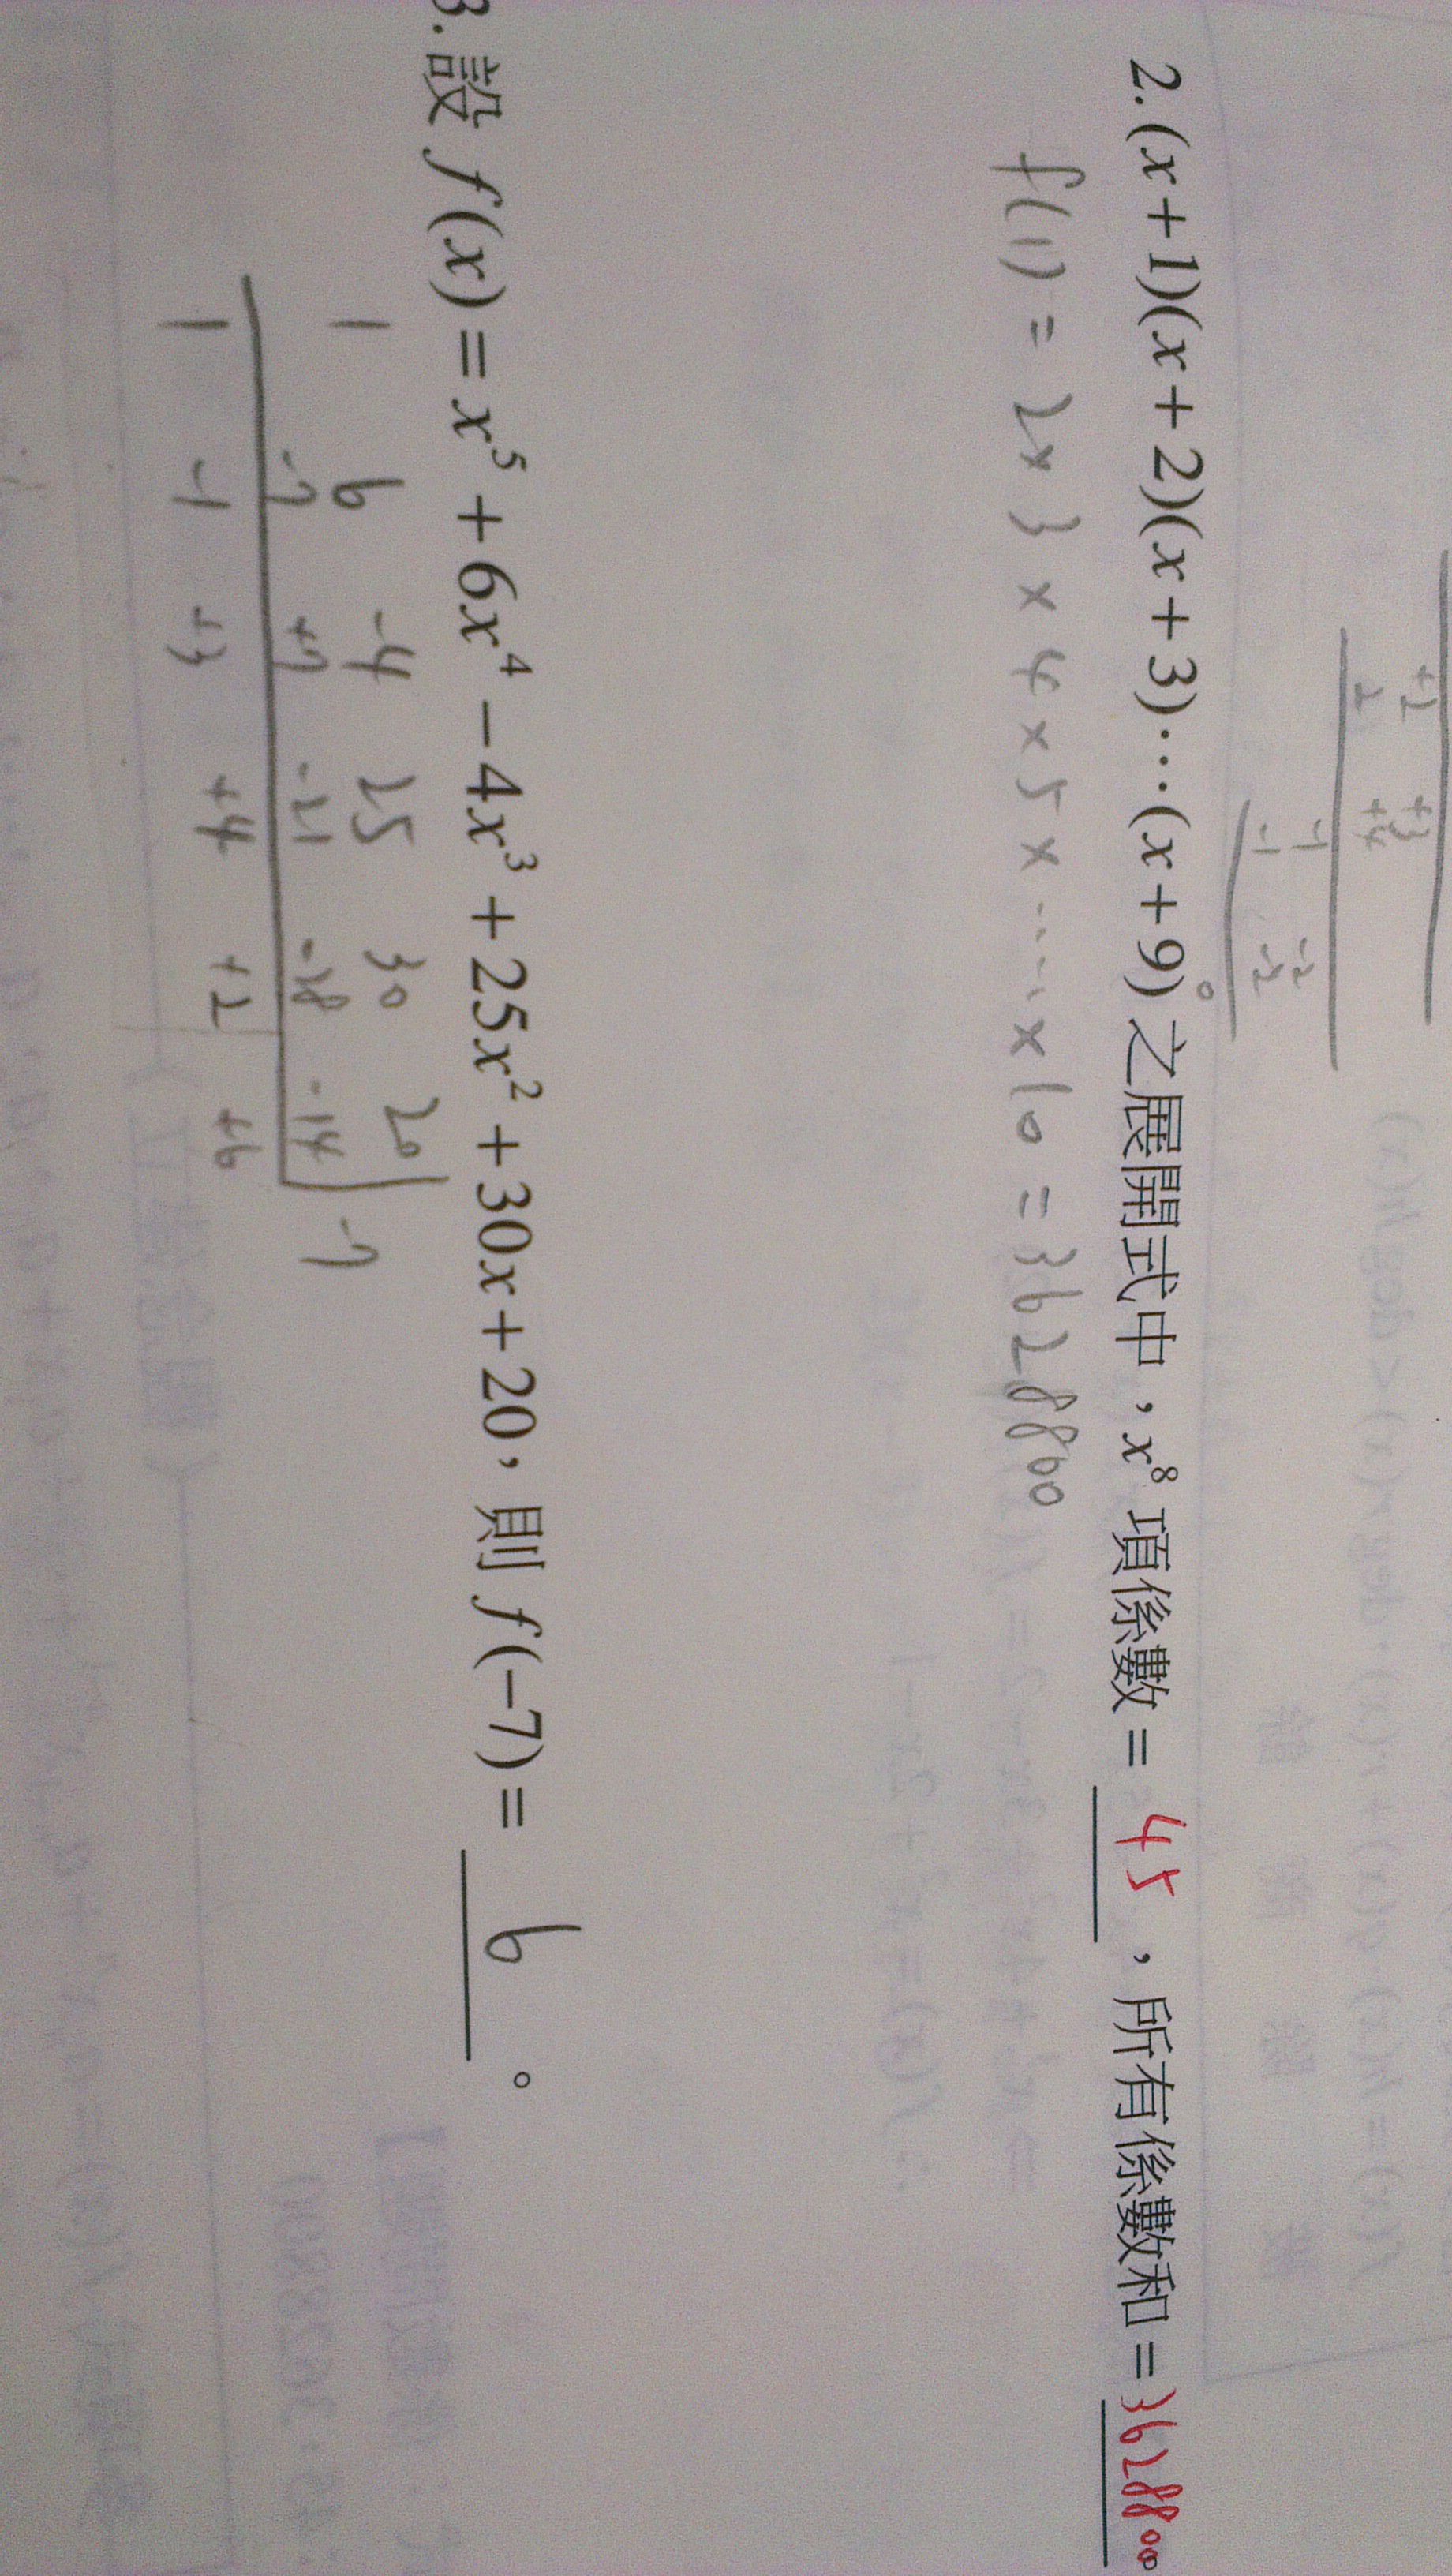 2. (x+1)(x+2)(x+3)⋯(x+9) 之展開式中，x⁸ 項係數 = 45 ，所有係數和 = 3628800。
f(1) = 2×3×4×5×⋯×10 = 3628800
3. 設 f(x) = x⁵ + 6x⁴ − 4x³ + 25x² + 30x + 20，則 f(−7) = 6 。
1 6 -4 25 30 20 -7
-7 +7 -21 -28 -14
1 -1 +3 +4 +2 +6